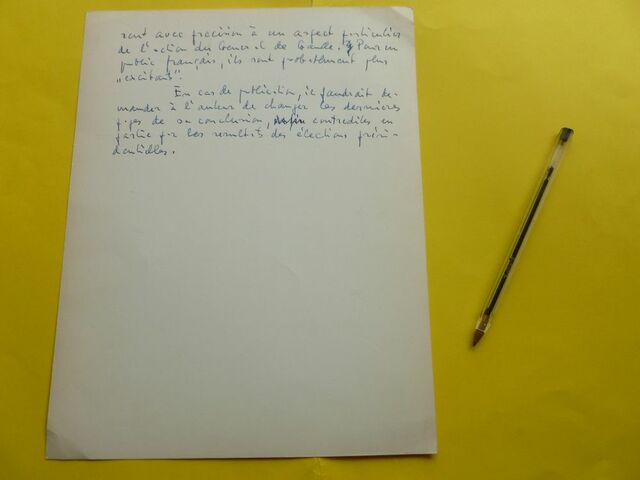 rent avec précision à un aspect particulier
de l'action du Général de Gaulle. Pour un
public français, ils sont probablement plus
„excitants".
En cas de publication, il faudrait de-
mander à l'auteur de changer les dernières
pages de sa conclusion, contredites en
partie par les résultats des élections prési-
dentielles.